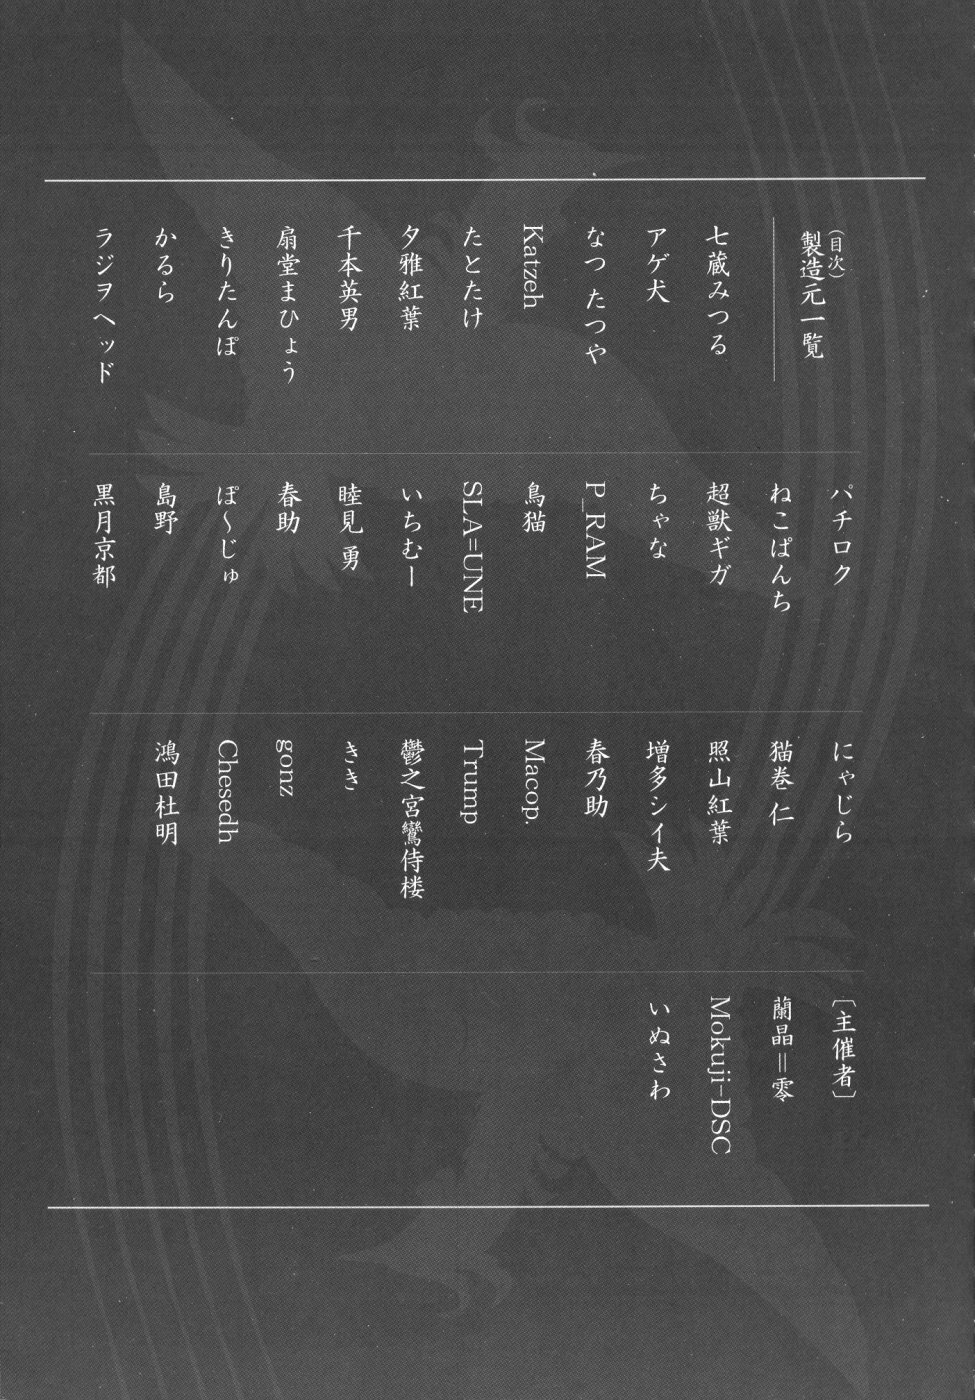 (目次)
製造元一覧
七蔵みつる
アゲ犬
なつ たつや
Katzeh
たとたけ
夕雅紅葉
千本英男
扇堂まひょう
きりたんぽ
かるら
ラジヲヘッド
パチロク
ねこぱんち
超獣ギガ
ちゃな
P_RAM
鳥猫
SLA=UNE
いちむー
睦見 勇
春助
ぽ～じゅ
島野
黒月京都
にゃじら
猫巻 仁
照山紅葉
増多シイ夫
春乃助
Macop.
Trump
鬱之宮鸞侍楼
きき
gonz
Chesedh
鴻田杜明
［主催者］
蘭晶＝零
Mokuji-DSC
いぬさわ